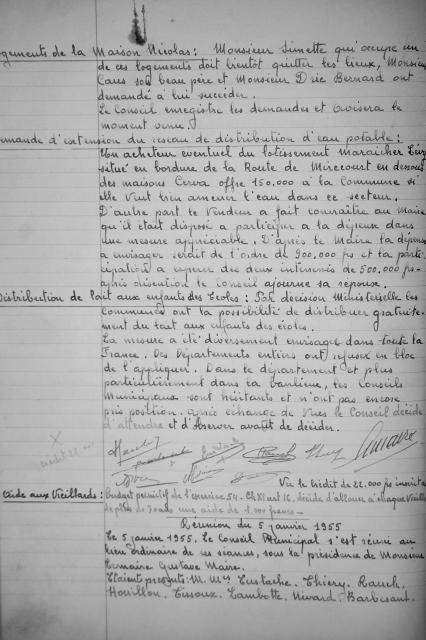 ogements de la Maison Nicolas : Monsieur Simette qui occupe un
de ces logements doit bientôt quitter les lieux, Monsieur
son beau père et Monsieur Drié Bernard ont
demandé à lui succéder.
Le Conseil enregistre les demandes et avisera le
moment venu.
emande d'extension du réseau de distribution d'eau potable :
Un acheteur éventuel du lotissement maraicher
situé en bordure de la Route de Mirecourt en dessous
des maisons Cerva offre 150.000 à la Commune si
elle veut bien amener l'eau dans ce secteur.
D'autre part le Vendeur a fait connaître au Maire
qu'il était disposé à participer à la dépense dans
une mesure appréciable. D'après le Maire la dépense
à envisager serait de l'ordre de 900.000 frs et la parti-
cipation à espérer des deux intéressés de 500.000 frs-
après discution le conseil ajourne sa réponse.
Distribution de lait aux enfants des Écoles : Par décision Ministérielle les
Communes ont la possibilité de distribuer gratuite-
ment du lait aux enfants des écoles.
La mesure a été diversement envisagée dans toute la
France. Des Départements entiers ont refusé en bloc
de l'appliquer. Dans le département et plus
particulièrement dans la banlieue, les Conseils
Municipaux sont hésitants et n'ont pas encore
pris position. après échange de vues le Conseil décide
d'attendre et d'observer avant de décider.
Vu le crédit de 22.000 frs inscrit au
Aide aux Vieillards : Budget primitif de l'exercice 54. Ch XI art 16, décide d'allouer à chaque Vieillard
de plus de 70 ans une aide de 1.000 francs -
Réunion du 5 janvier 1955
Le 5 janvier 1955, le Conseil Municipal s'est réuni au
lieu ordinaire de ses séances, sous la présidence de Monsieur
Lemaire Gustave Maire.
Etaient présents : M. Mrs Eustache, Thiéry, Rauch,
Houillon, Tisoux, Lambotte, Nivard, Barbesant.